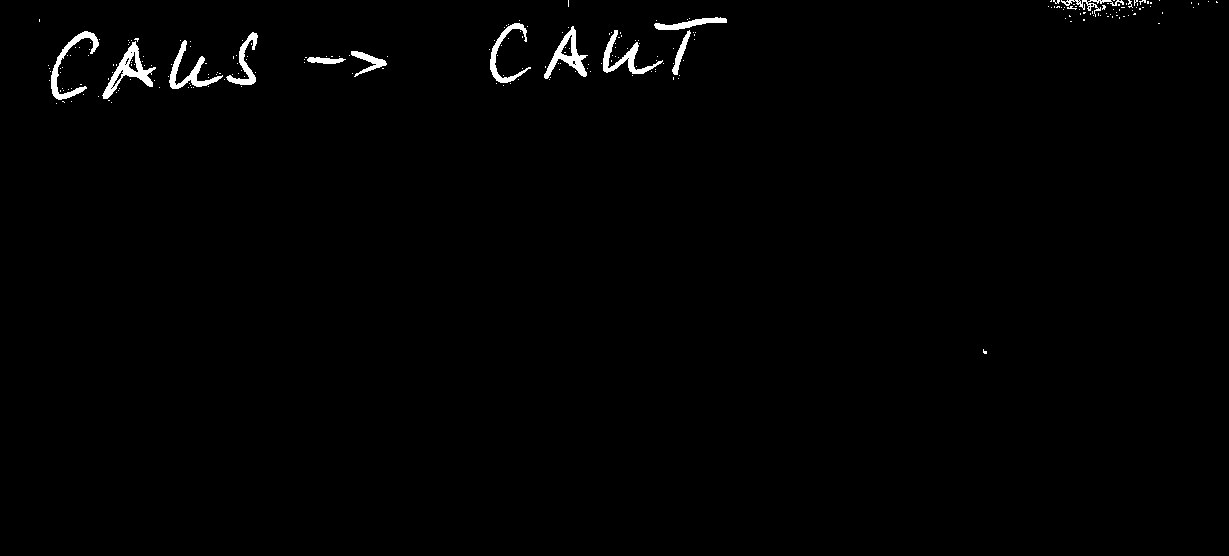 CAUS -> CAUT